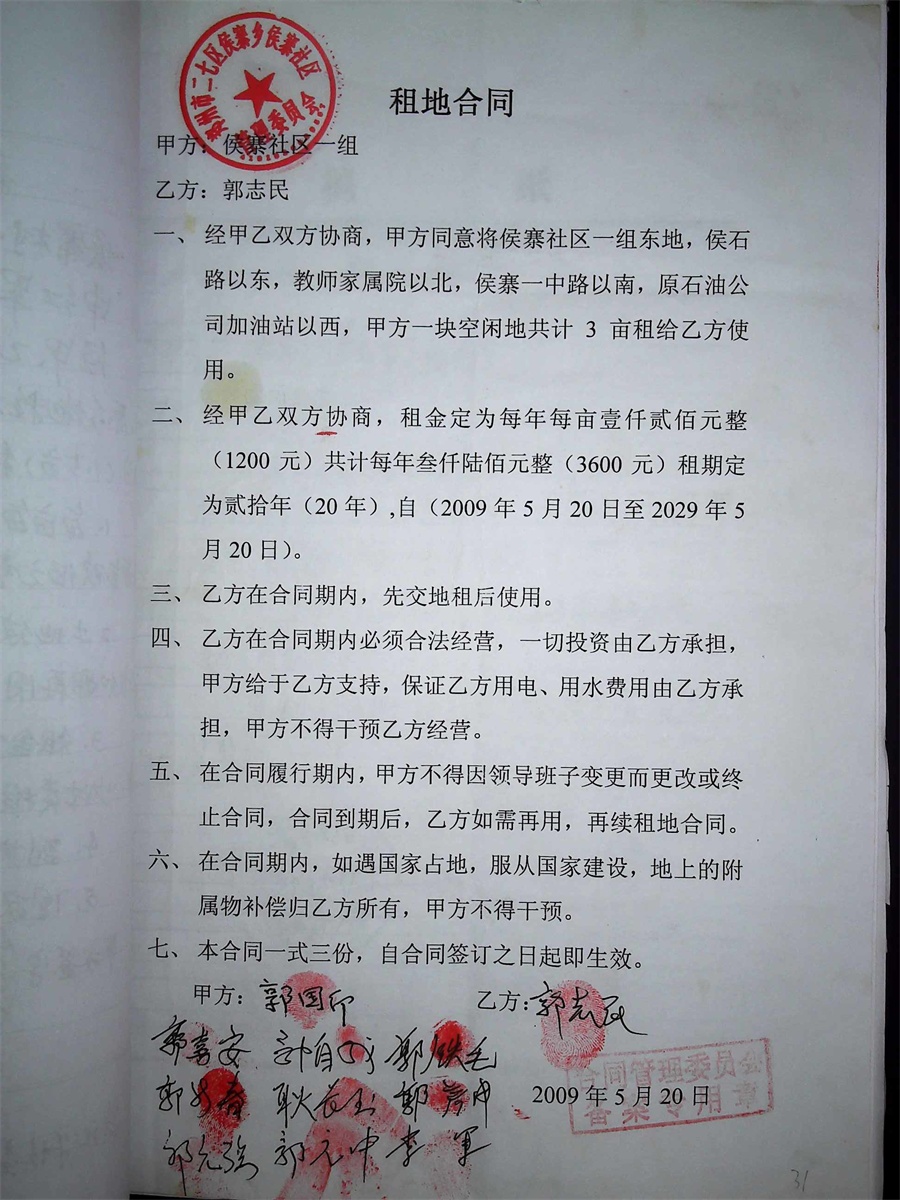 郑州市二七区侯寨乡侯寨社区
管理委员会
租地合同
甲方：侯寨社区一组
乙方：郭志民
一、经甲乙双方协商，甲方同意将侯寨社区一组东地，侯石
路以东，教师家属院以北，侯寨一中路以南，原石油公
司加油站以西，甲方一块空闲地共计 3 亩租给乙方使
用。
二、经甲乙双方协商，租金定为每年每亩壹仟贰佰元整
（1200 元）共计每年叁仟陆佰元整（3600 元）租期定
为贰拾年（20 年）,自（2009 年 5 月 20 日至 2029 年 5
月 20 日）。
三、乙方在合同期内，先交地租后使用。
四、乙方在合同期内必须合法经营，一切投资由乙方承担，
甲方给于乙方支持，保证乙方用电、用水费用由乙方承
担，甲方不得干预乙方经营。
五、在合同履行期内，甲方不得因领导班子变更而更改或终
止合同，合同到期后，乙方如需再用，再续租地合同。
六、在合同期内，如遇国家占地，服从国家建设，地上的附
属物补偿归乙方所有，甲方不得干预。
七、本合同一式三份，自合同签订之日起即生效。
甲方：郭国印 乙方：郭志民
郭喜安 郭铁毛
合同管理委员会
备案专用章
2009 年 5 月 20 日
郭元强 郭元中 李军
31